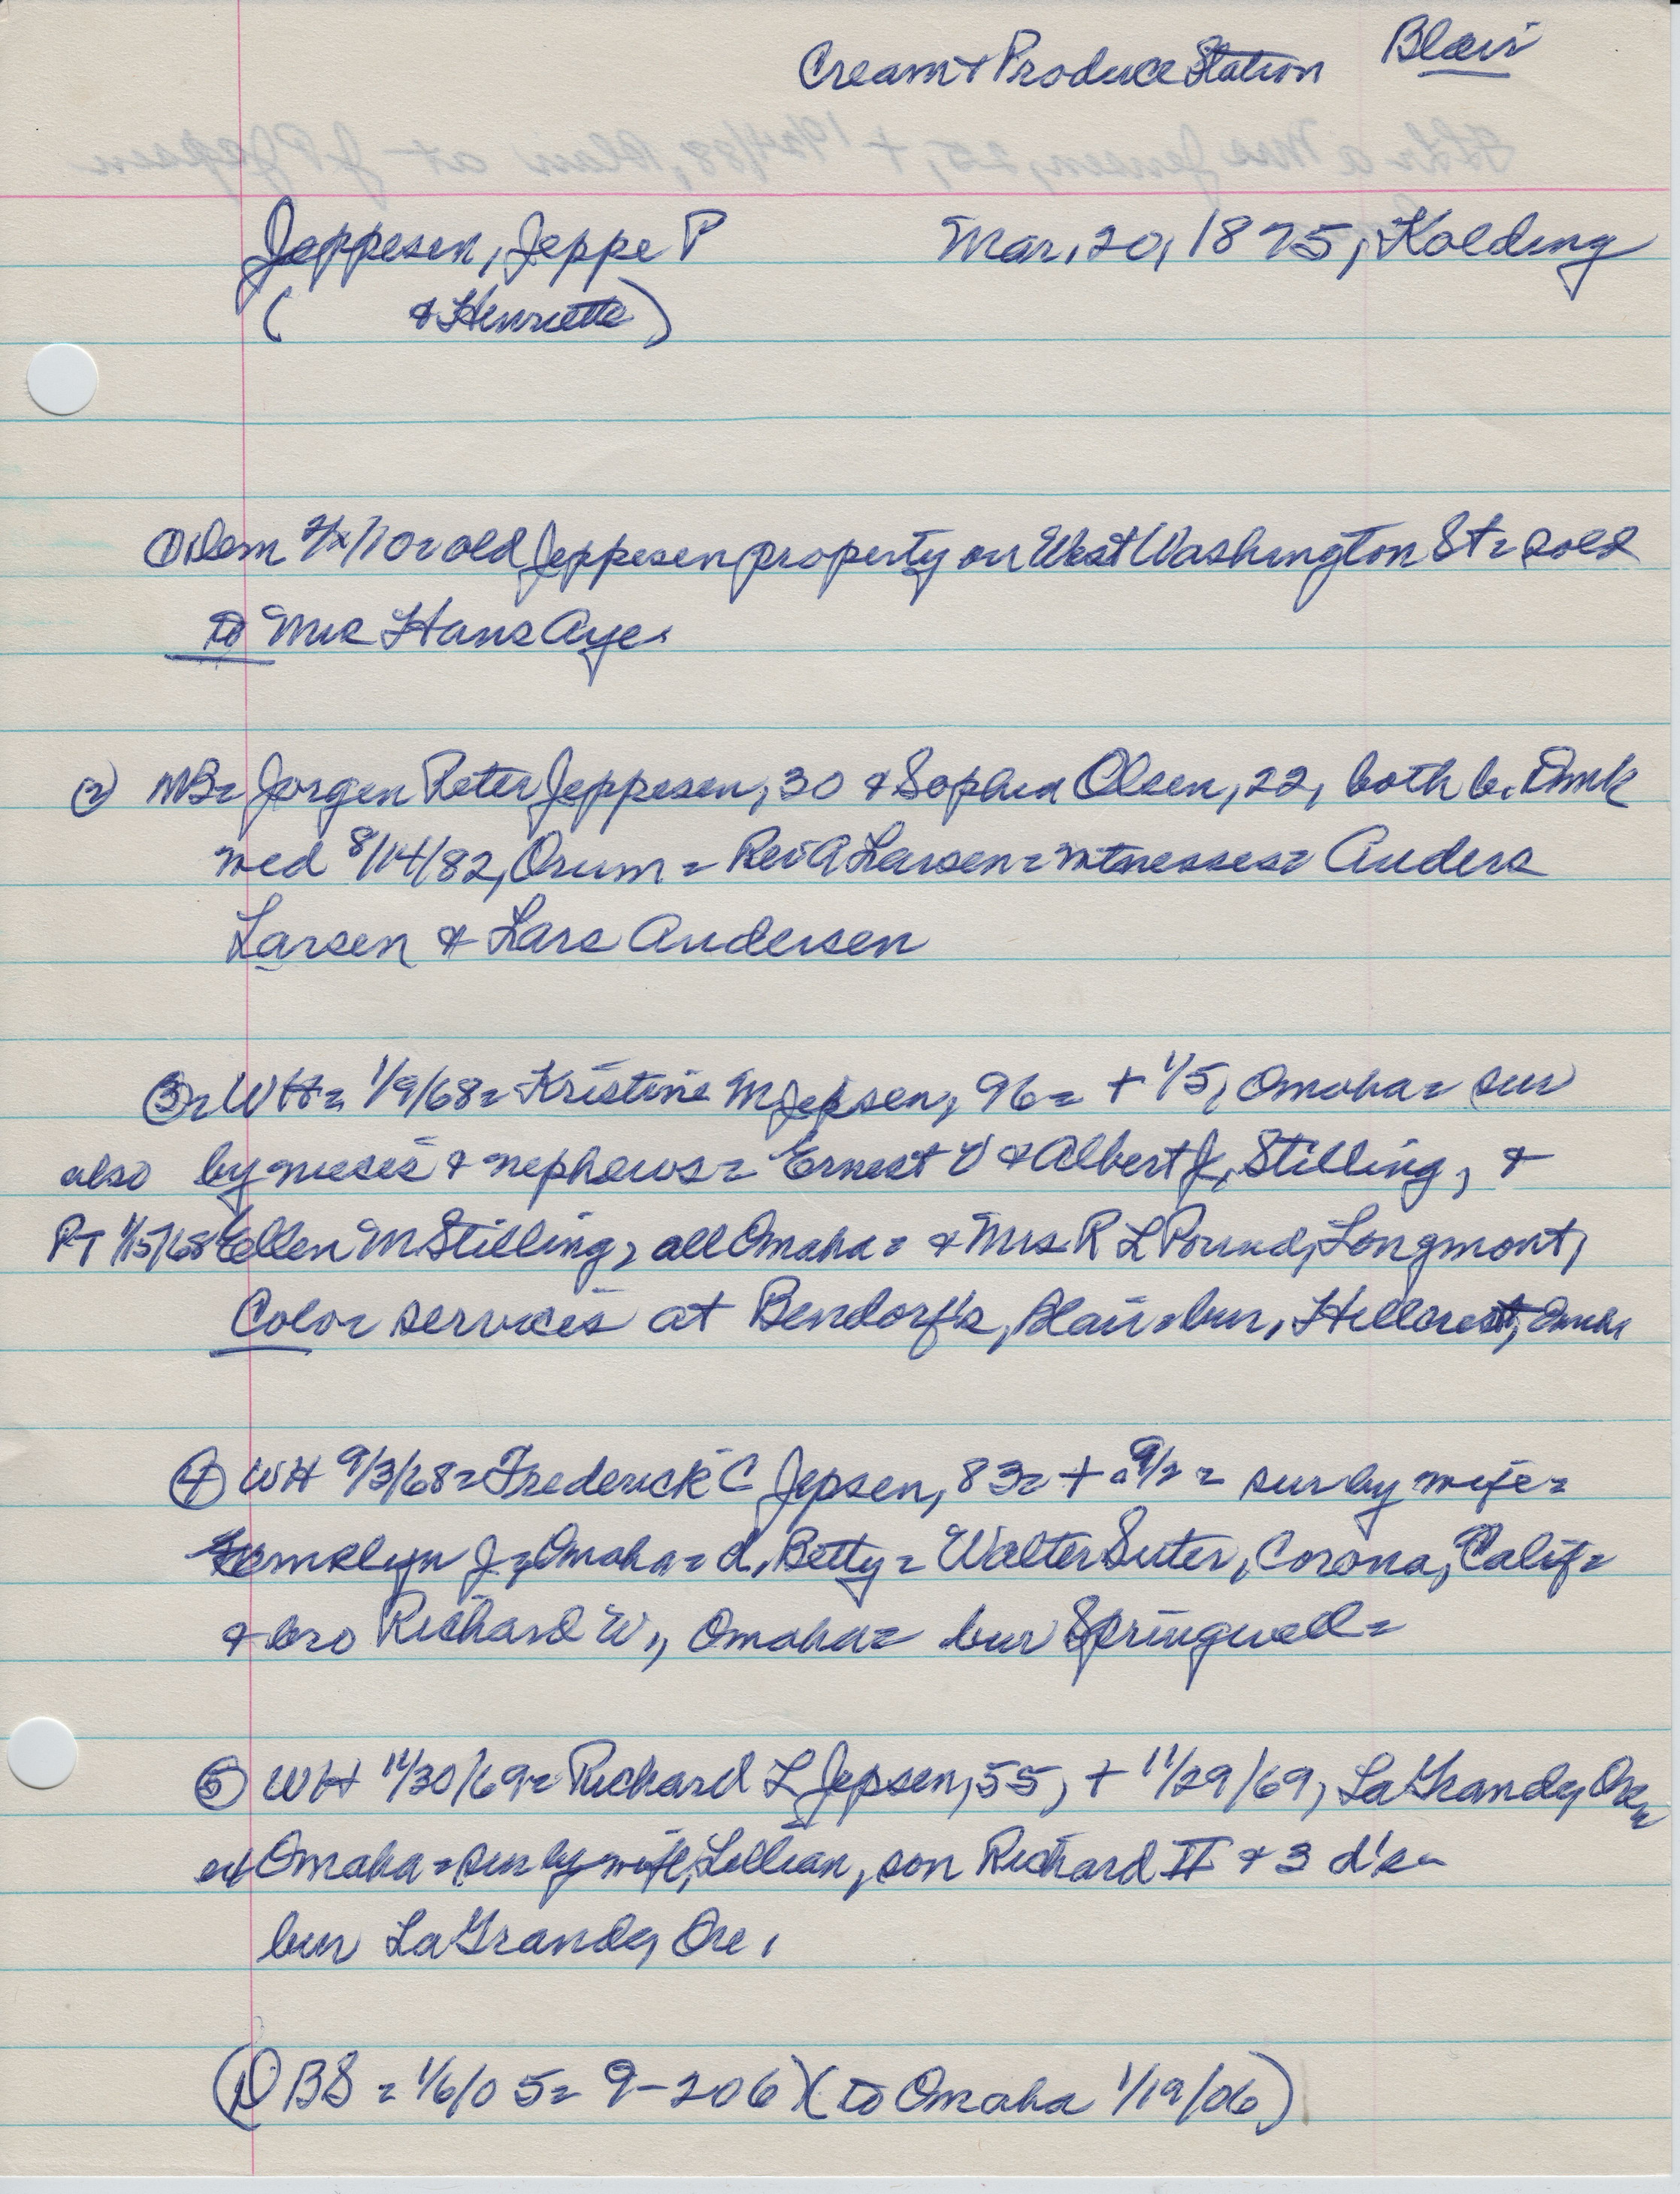 Cream & Produce Station Blair
Jeppesen, Jeppe P Mar, 20, 1875, Kolding
( & Henriette )
① Dem 2/x/10 = old Jeppesen property on West Washington St = sold
to Mrs Hans Aye.
② MB = Jorgen Peter Jeppesen, 30 & Sophia Olsen, 22, both b. Dmk
wed 8/14/82, Orum = Rev A Larsen = witnesses = Anders
Larsen & Lars Andersen
③ = WH = 1/9/68 = Kristine M Jepsen, 96 = + 1/5, Omaha = sur
also by nieces & nephews = Ernest V & Albert J, Stilling, &
PT 1/15/68 Ellen M Stilling, all Omaha = & Mrs R L Pound, Longmont,
Colo = services at Bendorf's, Blair = bur, Hillcrest, Omaha
④ WH 9/3/68 = Frederick C Jepsen, 83 = + 9/2 = sur by wife =
J, Omaha = d, Betty = Walter Suter, Corona, Calif =
& bro Richard W,, Omaha = bur Springwell =
⑤ WH 11/30/69 = Richard L Jepsen, 55, + 11/29/69, LaGrande, Ore,
Omaha = sur by wife, Lillian, son Richard II & 3 d's =
bur LaGrande, Ore,
(① BS = 1/6/05 = 9-206) (to Omaha 1/19/06)